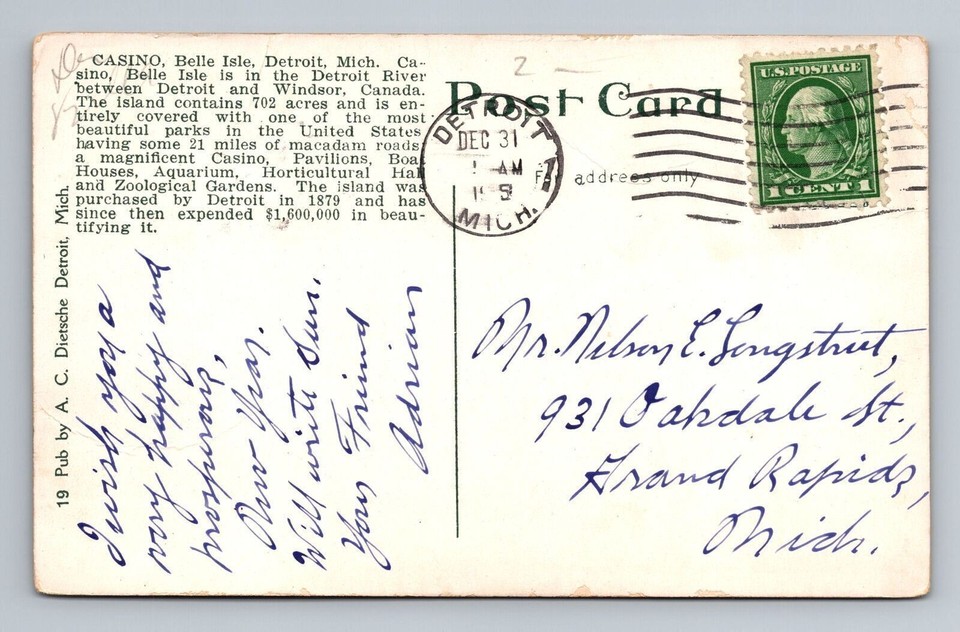 CASINO, Belle Isle, Detroit, Mich. Ca-
sino, Belle Isle is in the Detroit River
between Detroit and Windsor, Canada.
The island contains 702 acres and is en-
tirely covered with one of the most
beautiful parks in the United States
having some 21 miles of macadam roads,
a magnificent Casino, Pavilions, Boat
Houses, Aquarium, Horticultural Hall
and Zoological Gardens. The island was
purchased by Detroit in 1879 and has
since then expended $1,600,000 in beau-
tifying it.
19 Pub by A. C. Dietsche Detroit, Mich.
I wish you a
very happy and
prosperous,
New Year.
Will write Sun.
Your Friend
Adrian
2
Post Card
address only
DETROIT
DEC 31
AM
MICH.
U.S. POSTAGE
1 CENT 1
Mr. Nelson E. Longstreet,
931 Oakdale St.,
Grand Rapids,
Mich.